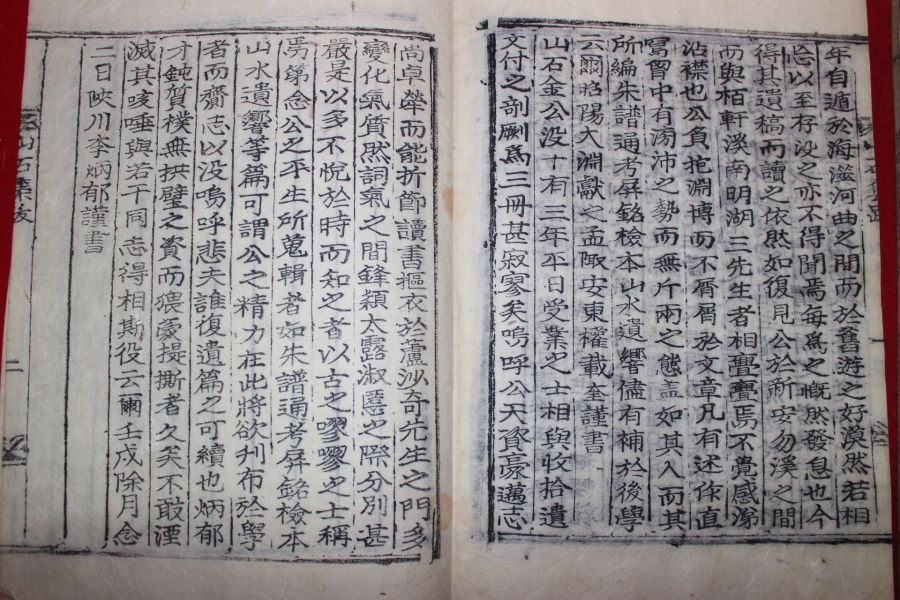 年自遁於海澨河曲之間而於舊游之好漠然若相
忘以至存沒之亦不得聞焉每爲之慨然發息也今
得其遺稿而讀之依然如復見公於新安勿溪之間
而與栢軒溪南明湖三先生者相亹亹焉不覺感涕
沾襟也公負抱淵博而不屑屑於文章凡有述作直
寫胷中有滂沛之勢而無斤兩之態盖如其人而其
所編朱譜通考屏銘檢本山水遺響儘有補於後學
云爾昭陽大淵獻之孟陬安東權載奎謹書
山石金公沒十有三年平日受業之士相與收拾遺
文付之剞劂爲三冊甚寂寥矣嗚呼公天資豪邁志
尚卓犖而能折節讀書摳衣於蘆沙奇先生之門多
變化氣質然詞氣之間鋒纇太露淑慝之際分別甚
嚴是以多不悅於時而知之者以古之嘐嘐之士稱
焉第念公之平生所蒐輯者如朱譜通考屏銘檢本
山水遺響等篇可謂公之精力在此將欲刋布於學
者而齎志以沒嗚呼悲夫誰復遺篇之可續也炳郁
才鈍質樸無拱璧之資而猥蒙提撕者久矣不敢湮
滅其咳唾與若干同志得相斯役云爾壬戌除月念
二日陜川李炳郁謹書
山石集跋
二